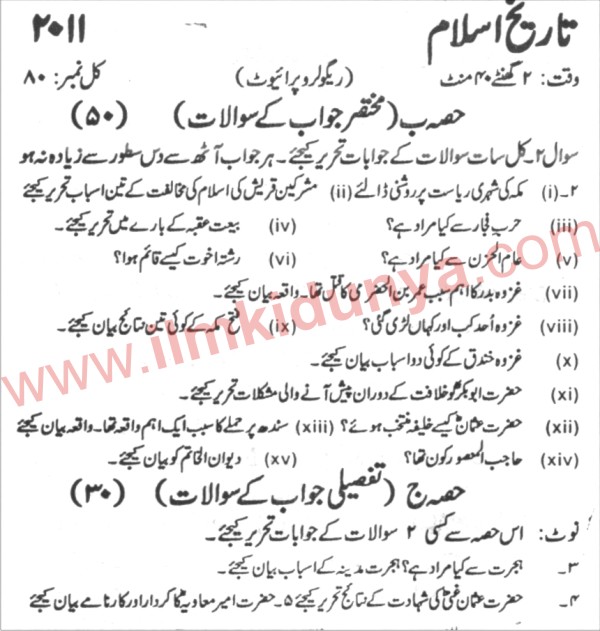 تاریخ اسلام ۲۰۱۱
وقت: ۲ گھنٹے ۴۰ منٹ (ریگولر و پرائیوٹ) کل نمبر: ۸۰
حصہ ب (مختصر جواب کے سوالات) (۵۰)
سوال ۲۔ کل سات سوالات کے جوابات تحریر کیجئے۔ ہر جواب آٹھ سے دس سطور سے زیادہ نہ ہو
۲۔ (i) مکہ کی شہری ریاست پر روشنی ڈالئے (ii) مشرکین قریش کی اسلام کی مخالفت کے تین اسباب تحریر کیجئے
(iii) حرب فجار سے کیا مراد ہے؟ (iv) بیعت عقبہ کے بارے میں تحریر کیجئے۔
(v) عام الحزن سے کیا مراد ہے؟ (vi) رشتہ اخوت کیسے قائم ہوا؟
(vii) غزوہ بدر کا اہم سبب عمر بن الحضرمی کا قتل تھا۔ واقعہ بیان کیجئے۔
(viii) غزوہ احد کب اور کہاں لڑی گئی؟ (ix) فتح مکہ کے کوئی تین نتائج بیان کیجئے۔
(x) غزوہ خندق کے کوئی دو اسباب بیان کیجئے۔
(xi) حضرت ابوبکرؓ کو خلافت کے دوران پیش آنے والی مشکلات تحریر کیجئے۔
(xii) حضرت عثمانؓ کیسے خلیفہ منتخب ہوئے؟ (xiii) سندھ پر حملے کا سبب ایک اہم واقعہ تھا۔ واقعہ بیان کیجئے
(xiv) حاجب المنصور کون تھا؟ (xv) دیوان الخاتم کو بیان کیجئے۔
حصہ ج (تفصیلی جواب کے سوالات) (۳۰)
نوٹ: اس حصہ سے کسی ۲ سوالات کے جوابات تحریر کیجئے۔
۳۔ ہجرت سے کیا مراد ہے؟ ہجرت مدینہ کے اسباب بیان کیجئے۔
۴۔ حضرت عثمان غنیؓ کی شہادت کے نتائج تحریر کیجئے ۵۔ حضرت امیر معاویہؓ کا کردار اور کارنامے بیان کیجئے
www.ilmkidunya.com